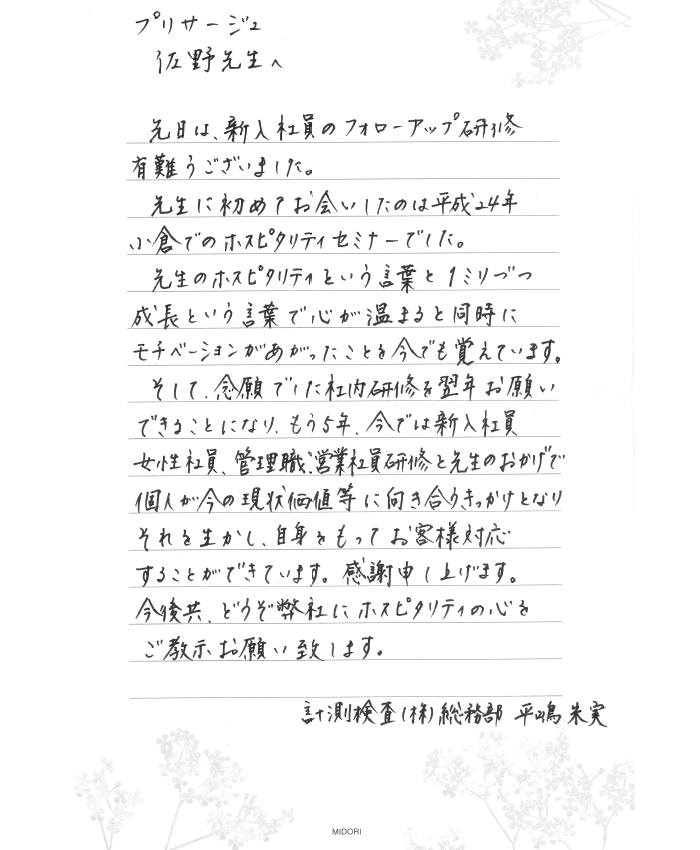 プリサージュ
佐野先生へ
先日は、新入社員のフォローアップ研修
有難うございました。
先生に初めてお会いしたのは平成24年
小倉でのホスピタリティセミナーでした。
先生のホスピタリティという言葉と1ミリづつ
成長という言葉で心が温まると同時に
モチベーションがあがったことを今でも覚えています。
そして、念願でした社内研修を翌年お願い
できることになり、もう5年、今では新入社員
女性社員、管理職、営業社員研修と先生のおかげで
個人が今の現状価値等に向き合うきっかけとなり
それを生かし、自身をもってお客様対応
することができています。感謝申し上げます。
今後共、どうぞ弊社にホスピタリティの心を
ご教示お願い致します。
計測検査(株)総務部 平嶋朱実
MIDORI